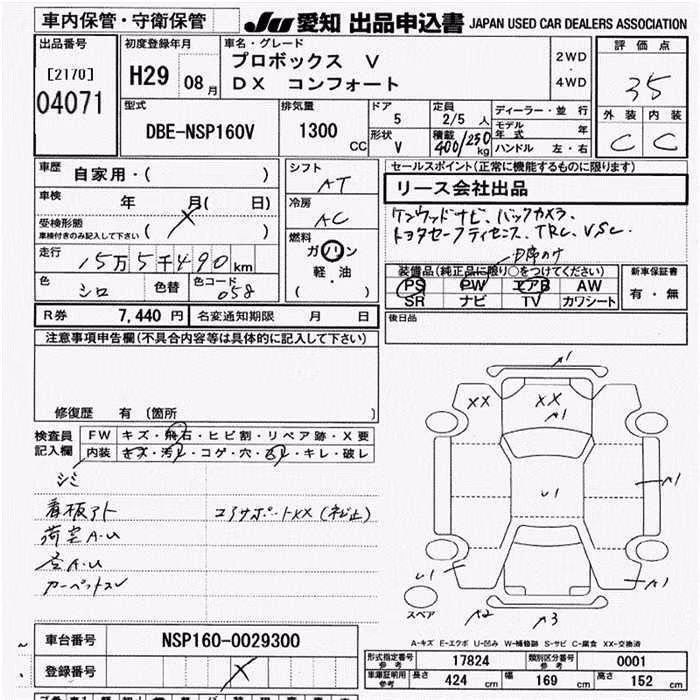 車内保管・守衛保管
JU 愛知 出品申込書 JAPAN USED CAR DEALERS ASSOCIATION
出品番号
[2170]
04071
初度登録年月
H29 08月
車名・グレード
プロボックス V
DX コンフォート
2WD
・
4WD
評価点
35
外装 内装
C C
型式
DBE-NSP160V
排気量
1300
CC
ドア
5
形状
V
定員
2/5 人
積載
400/250
kg
ディーラー・並行
モデル年式 年
ハンドル 左・右
車歴
自家用・( )
車検
年 月( 日)
受検形態
車検付きのみ記入して下さい ( )
走行
15万5千490km
色
シロ
色替
色コード
058
シフト
AT
冷房
AC
燃料
ガソリン
軽・油
( )
セールスポイント(正常に機能するものに限ります)
リース会社出品
ケンウッドナビ、バックカメラ、
トヨタセーフティセンス、TRC、VSC.
装備品(純正品に限り○をつけてください)
PS PW エアB AW
SR ナビ TV カワシート
新車保証書
有・無
R券 7,440 円
名変通知期限 月 日
後日品
注意事項申告欄(不具合内容等は具体的に記入して下さい)
修復歴 有 (箇所 )
検査員記入欄
FW キズ・飛石・ヒビ割・リペア跡・X要
内装 キズ・汚レ・コゲ・穴・ハリレ・キレ・破レ
シミ
看板アト
コアサポートXX(ネジ止)
荷室A.U
カーペットスレ
XX
XX
A1
U1
A1
U1
A1
A2
A3
スペア
A-キズ E-エクボ U-凹み W-補修跡 S-サビ C-腐食 XX-交換済
車台番号
NSP160-0029300
登録番号
形式指定番号
参考
17824
類別区分番号
参考
0001
車庫証明用
参考
長さ 424 cm
幅 169 cm
高さ 152 cm